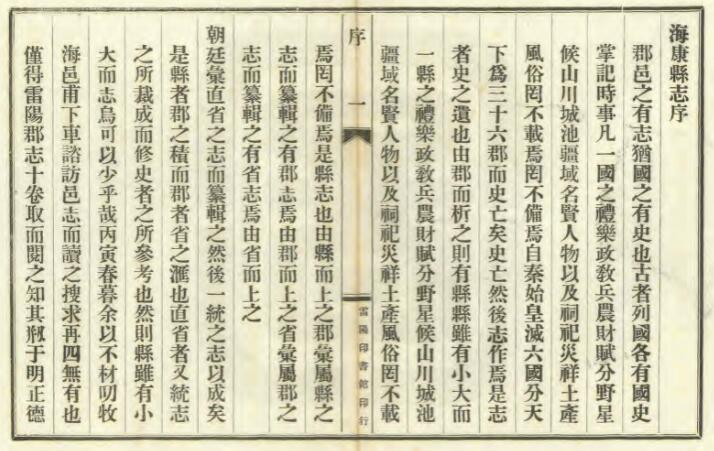 海康縣志序
郡邑之有志猶國之有史也古者列國各有國史
掌記時事凡一國之禮樂政教兵農財賦分野星
候山川城池疆域名賢人物以及祠祀災祥土產
風俗罔不載焉罔不備焉自秦始皇滅六國分天
下爲三十六郡而史亡矣史亡然後志作焉是志
者史之遺也由郡而析之則有縣縣雖有小大而
一縣之禮樂政教兵農財賦分野星候山川城池
疆域名賢人物以及祠祀災祥土產風俗罔不載
序
一
雷陽印書館印行
焉罔不備焉是縣志也由縣而上之郡彙屬縣之
志而纂輯之有郡志焉由郡而上之省彙屬郡之
志而纂輯之有省志焉由省而上之
朝廷彙直省之志而纂輯之然後一統之志以成矣
是縣者郡之積而郡者省之滙也直省者又統志
之所裁成而修史者之所參考也然則縣雖有小
大而志烏可以少乎哉丙寅春暮余以不材叨牧
海邑甫下車諮訪邑志而讀之搜求再四無有也
僅得雷陽郡志十卷取而閱之知其剏于明正德